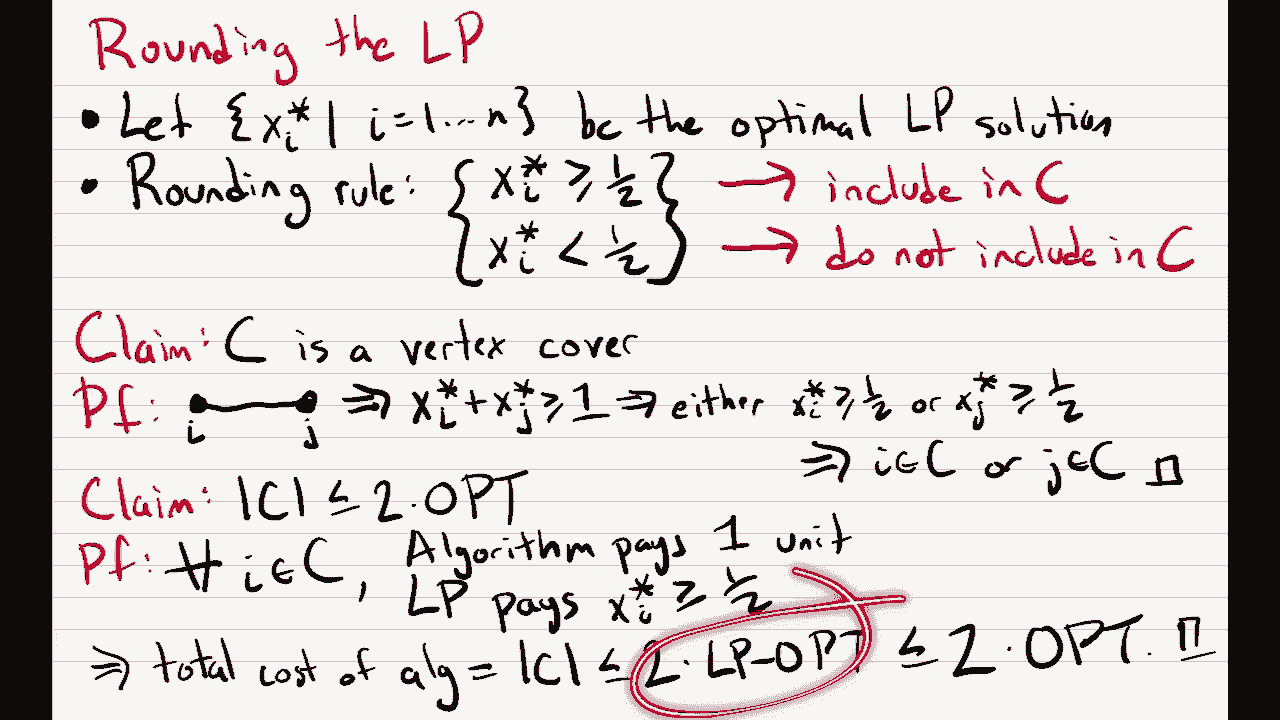 Rounding the LP
• Let {x_i* | i=1...n} be the optimal LP solution
• Rounding rule: { x_i* ≥ 1/2 } → include in C
{ x_i* < 1/2 } → do not include in C
Claim: C is a vertex cover
Pf: i j ⇒ x_i* + x_j* ≥ 1 ⇒ either x_i* ≥ 1/2 or x_j* ≥ 1/2
⇒ i∈C or j∈C □
Claim: |C| ≤ 2·OPT
Pf: ∀ i∈C, Algorithm pays 1 unit
LP pays x_i* ≥ 1/2
⇒ total cost of alg = |C| ≤ 2·LP-OPT ≤ 2·OPT. □